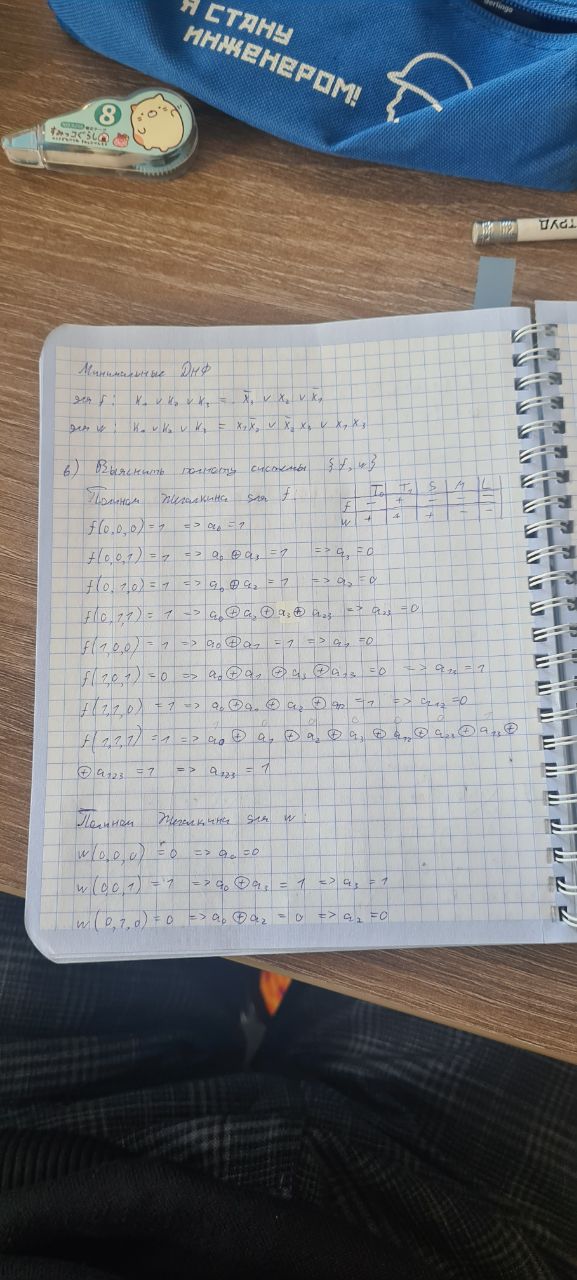 Я СТАНУ
ИНЖЕНЕРОМ!
8
すみっコぐらし
ТРУД
Минимальные ДНФ
для f: K₁ ∨ K₂ ∨ K₃ = x̄₃ ∨ x₂ ∨ x̄₁
для w: K₁ ∨ K₂ ∨ K₃ = x₁x̄₂ ∨ x̄₂x₃ ∨ x₁x₃
в) Выяснить полноту системы {f, w}
T₀ T₁ S M L
f − + − − −
w + + + − −
Полином Жегалкина для f:
f(0,0,0) = 1 => a₀ = 1
f(0,0,1) = 1 => a₀ ⊕ a₃ = 1 => a₃ = 0
f(0,1,0) = 1 => a₀ ⊕ a₂ = 1 => a₂ = 0
f(0,1,1) = 1 => a₀ ⊕ a₂ ⊕ a₃ ⊕ a₂₃ => a₂₃ = 0
f(1,0,0) = 1 => a₀ ⊕ a₁ = 1 => a₁ = 0
f(1,0,1) = 0 => a₀ ⊕ a₁ ⊕ a₃ ⊕ a₁₃ = 0 => = 1
f(1,1,0) = 1 => a₀ ⊕ a₁ ⊕ a₂ ⊕ = 1 => a₁₂ = 0
f(1,1,1) = 1 => a₀ ⊕ a₁ ⊕ a₂ ⊕ a₃ ⊕ a₁₂ ⊕ a₂₃ ⊕ a₁₃ ⊕
⊕ a₁₂₃ = 1 => a₁₂₃ = 1
Полином Жегалкина для w:
w(0,0,0) = 0 => a₀ = 0
w(0,0,1) = 1 => a₀ ⊕ a₃ = 1 => a₃ = 1
w(0,1,0) = 0 => a₀ ⊕ a₂ = 0 => a₂ = 0